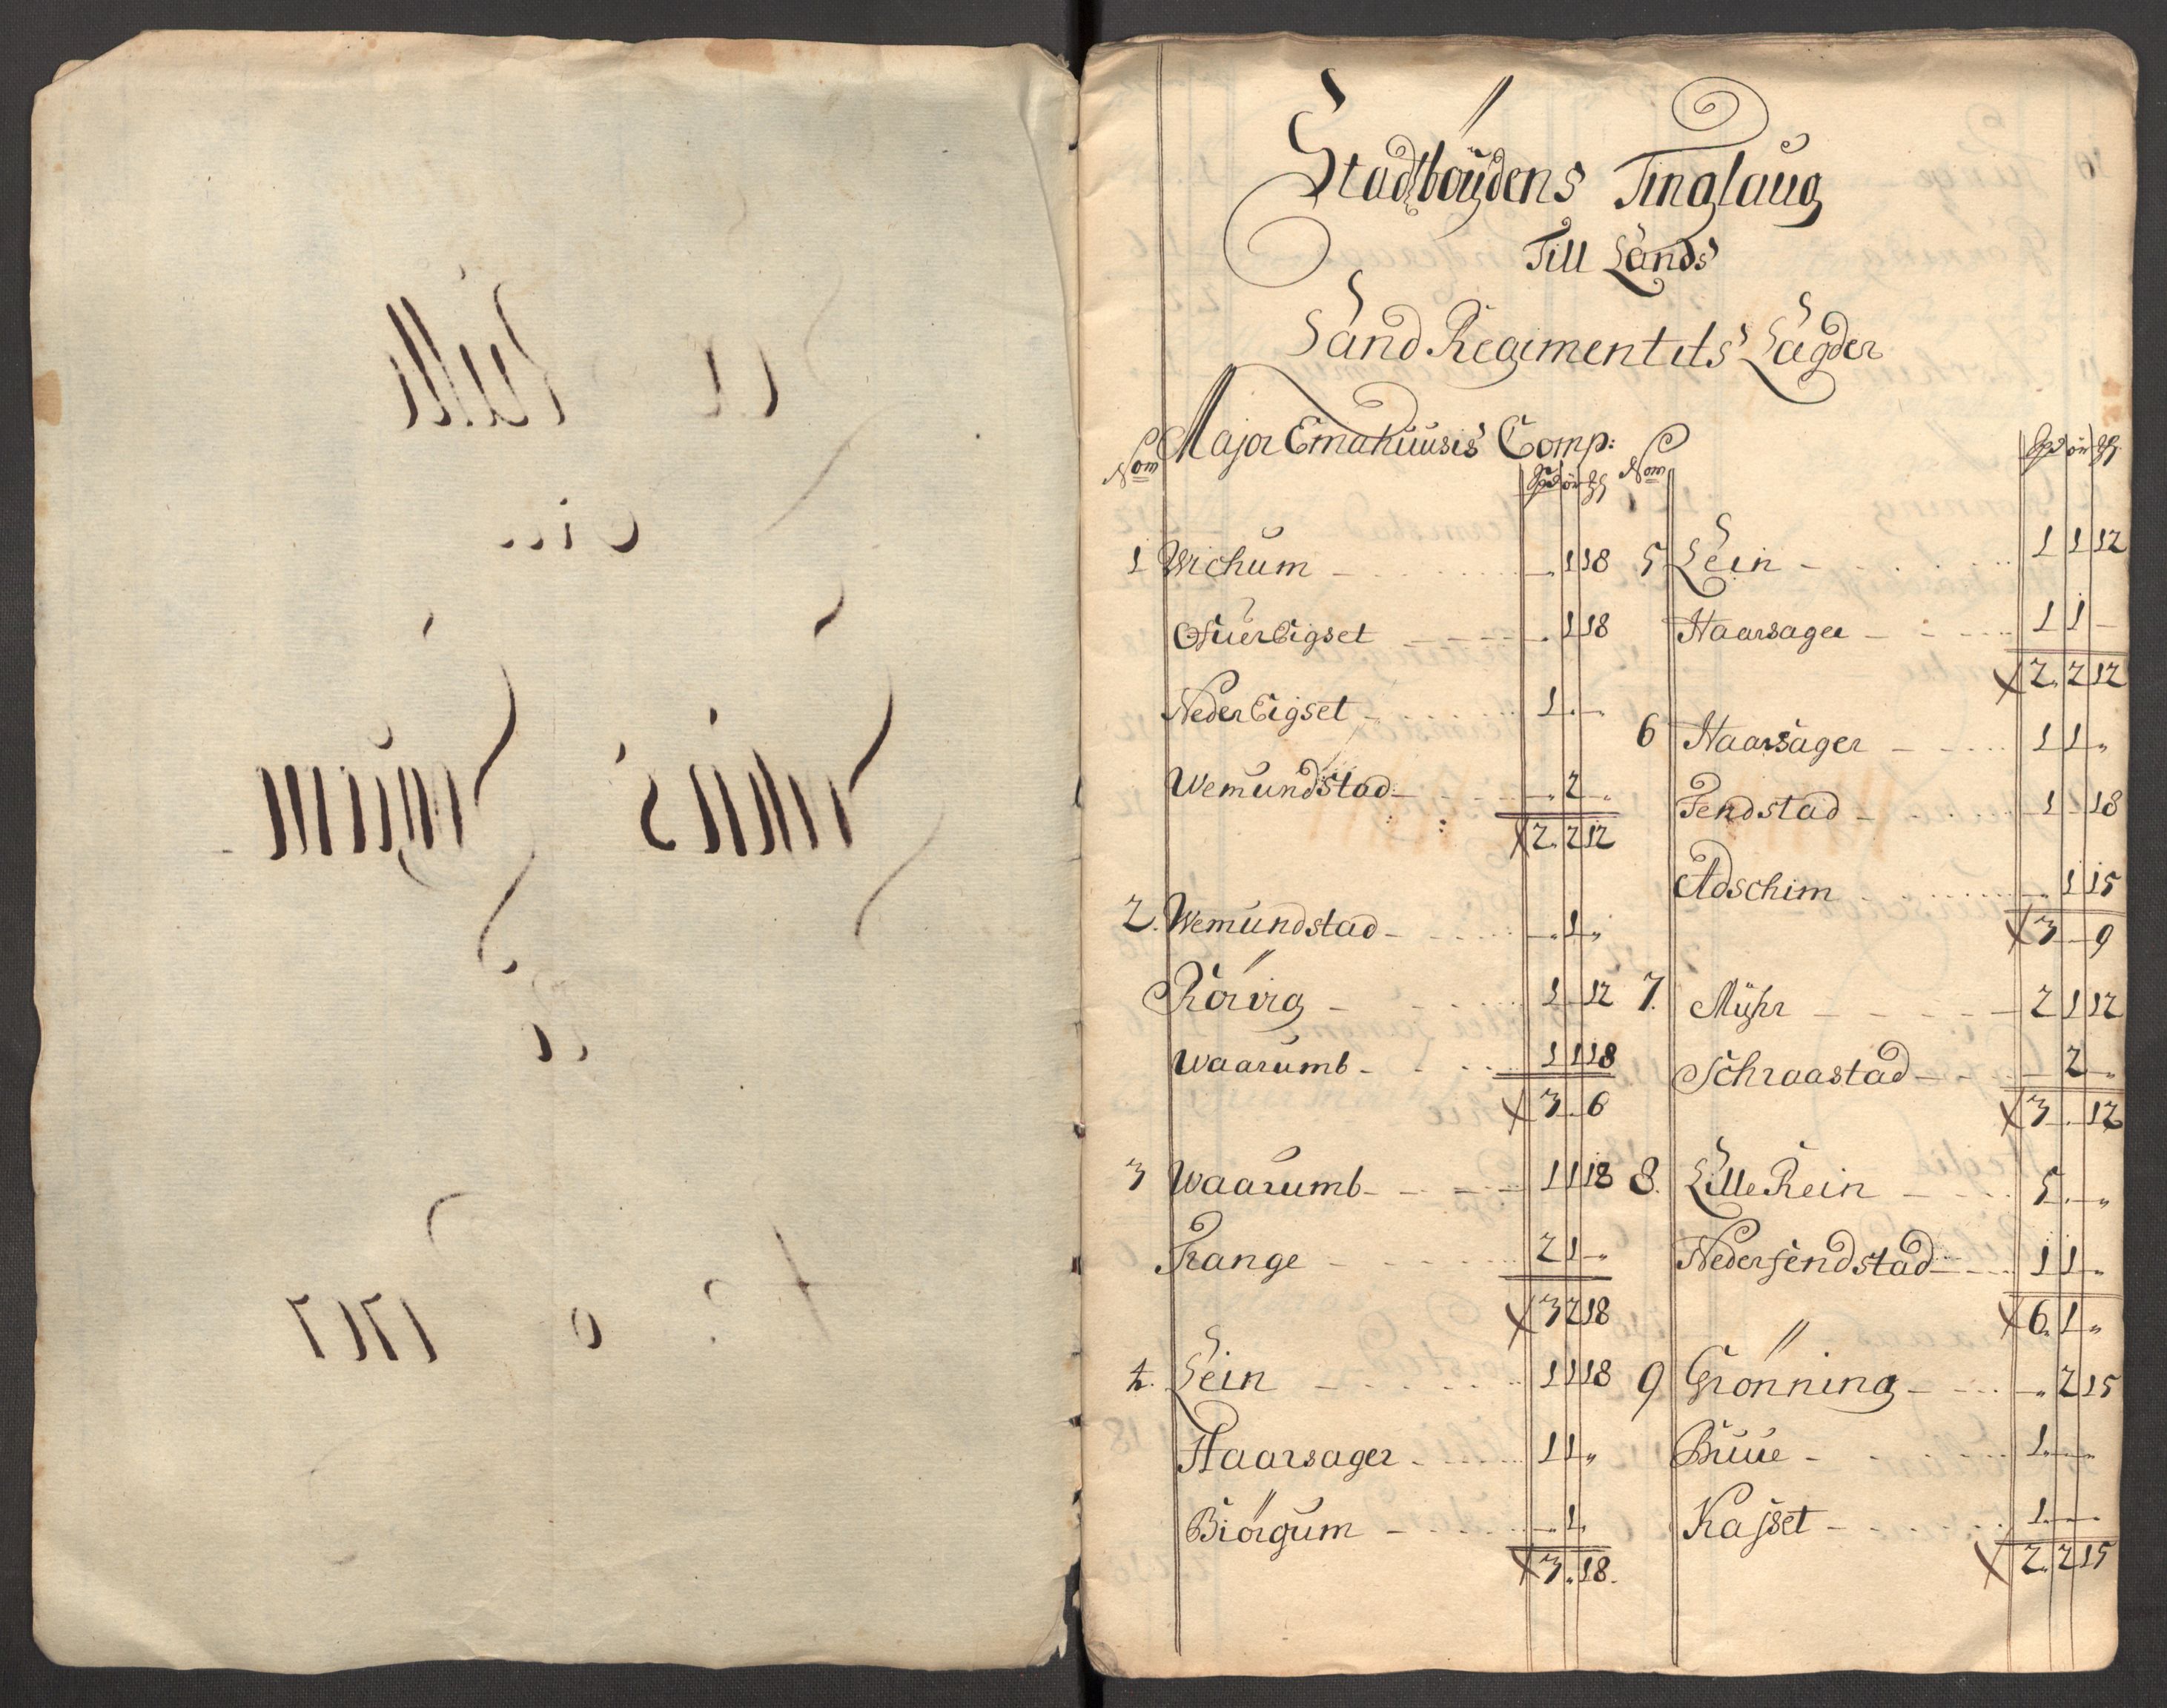 Stadsböÿdens Tinglaug
Till Lands
Land Regimentets Lægder
Major Emahuusis Comp:
Nom Spd ör ℔ Nom Spd ör ℔
1 Wichum - 1 18
Ofuer Eigset - 1 18
Neder Eigset 1 - -
Wemundstad - 2 -
2. 2 12
2. Wemundstad - 1 -
Rörvig - 1 - 12
Waarumb - 1 1 18
3 - 6
3 Waarumb - 1 1 18
Trange - 2 1 -
3 2 18
4. Lein - 1 1 18
Haarsager - 1 1 -
Biörgum - 1 -
3. 18.
5 Lein - 1 1 12
Haarsager - 1 1 -
2. 2 12
6 Haarsager - 1 1 -
Fendstad - 1 - 18
Adschim - 1 15
3 - 9
7. Muhr - 2 1 12
Schraastad - 2 -
3 - 12
8. Lille Rein - 5 - -
Nederfendstad - 1 1 -
6. 1 -
9 Grönning - 2 15
Bruue - 1 - -
Kajset - 1 - -
2. 2 15